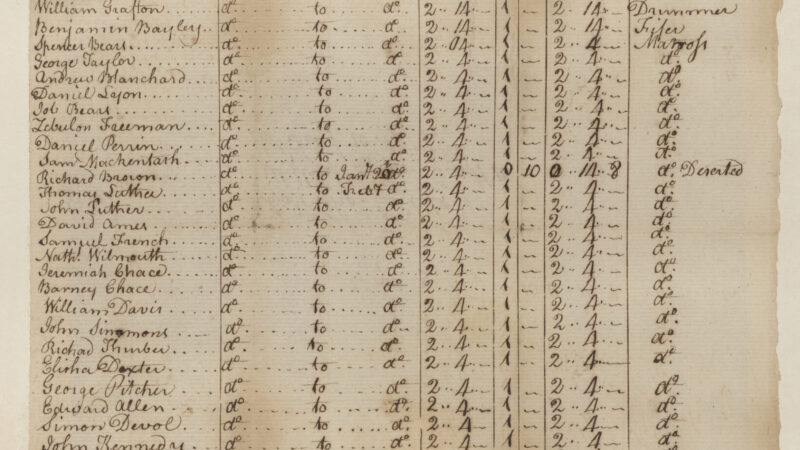 William Grafton.... dº. .... to .... dº. 2 .. 14 .. " 1 " 2 .. 14 .. " Drummer
Benjamin Bayley.... dº. .... to .... dº. 2 .. 14 .. " 1 " 2 .. 14 .. " Fifer
Spencer Bears.... dº. .... to .... dº. 2 .. 4 .. " 1 " 2 .. 4 .. " Matross
George Taylor.... dº. .... to .... dº. 2 .. 4 .. " 1 " 2 .. 4 .. " dº.
Andrew Blanchard.... dº. .... to .... dº. 2 .. 4 .. " 1 " 2 .. 4 .. " dº.
Daniel Lyon.... dº. .... to .... dº. 2 .. 4 .. " 1 " 2 .. 4 .. " dº.
Job Bears.... dº. .... to .... dº. 2 .. 4 .. " 1 " 2 .. 4 .. " dº.
Zebulon Freeman.... dº. .... to .... dº. 2 .. 4 .. " 1 " 2 .. 4 .. " dº.
Daniel Perrin.... dº. .... to .... dº. 2 .. 4 .. " 1 " 2 .. 4 .. " dº.
Sam Mackentash.... dº. .... to .... dº. 2 .. 4 .. " 1 " 2 .. 4 .. " dº.
Richard Brown.... dº. .... to Jany 2 .. 4 .. " 0 10 0 .. 14 .. 8 dº. Deserted
Thomas Luther.... dº. .... to Feb 2 .. 4 .. " 1 " 2 .. 4 .. " dº.
John Luther.... dº. .... to .... dº. 2 .. 4 .. " 1 " 2 .. 4 .. " dº.
David Ames.... dº. .... to .... dº. 2 .. 4 .. " 1 " 2 .. 4 .. " dº.
Samuel French.... dº. .... to .... dº. 2 .. 4 .. " 1 " 2 .. 4 .. " dº.
Nath. Wilmouth.... dº. .... to .... dº. 2 .. 4 .. " 1 " 2 .. 4 .. " dº.
Jeremiah Chace.... dº. .... to .... dº. 2 .. 4 .. " 1 " 2 .. 4 .. " dº.
Barney Chace.... dº. .... to .... dº. 2 .. 4 .. " 1 " 2 .. 4 .. " dº.
William Davis.... dº. .... to .... dº. 2 .. 4 .. " 1 " 2 .. 4 .. " dº.
John Simmons.... dº. .... to .... dº. 2 .. 4 .. " 1 " 2 .. 4 .. " dº.
Richad Thurber.... dº. .... to .... dº. 2 .. 4 .. " 1 " 2 .. 4 .. " dº.
Elisha Dexter.... dº. .... to .... dº. 2 .. 4 .. " 1 " 2 .. 4 .. " dº.
George Pitcher.... dº. .... to .... dº. 2 .. 4 .. " 1 " 2 .. 4 .. " dº.
Edward Allen.... dº. .... to .... dº. 2 .. 4 .. " 1 " 2 .. 4 .. " dº.
Simon Devol.... dº. .... to .... dº. 2 .. 4 .. " 1 " 2 .. 4 .. " dº.
John Kennedy.... dº. .... to .... dº. 2 .. 4 .. " 1 " 2 .. 4 .. " dº.